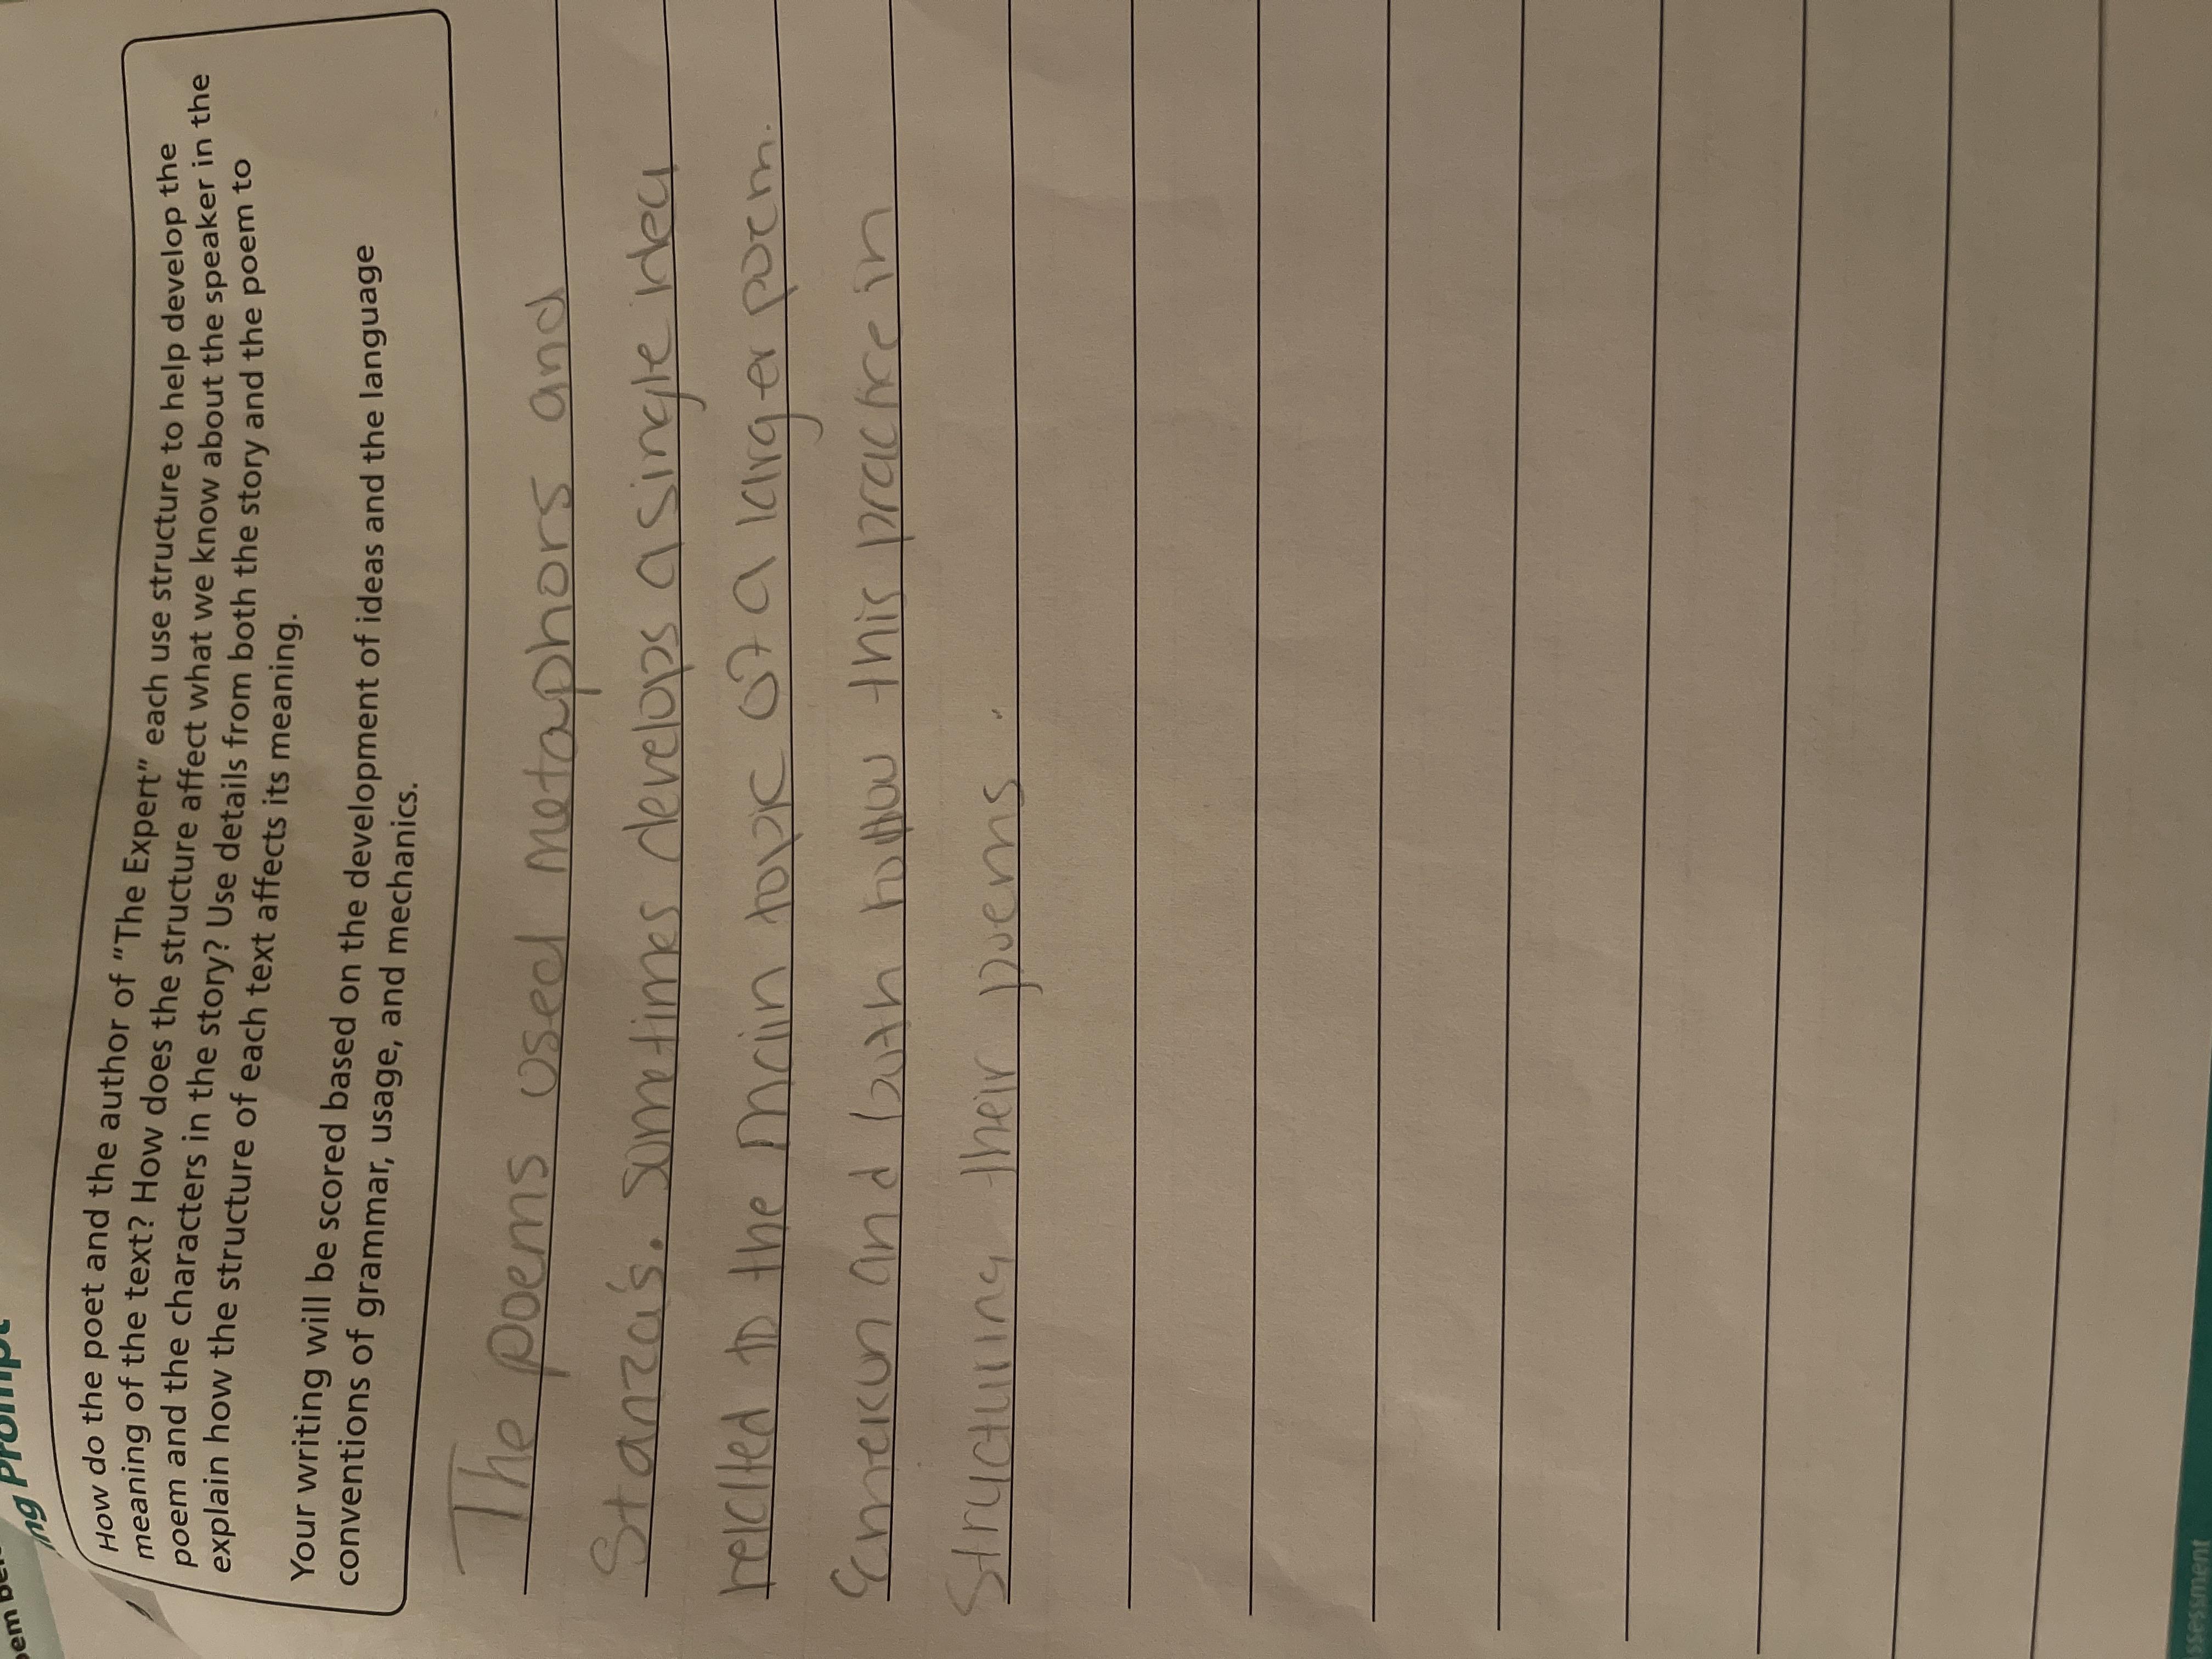 ng Prompt
How do the poet and the author of "The Expert" each use structure to help develop the
meaning of the text? How does the structure affect what we know about the speaker in the
poem and the characters in the story? Use details from both the story and the poem to
explain how the structure of each text affects its meaning.
Your writing will be scored based on the development of ideas and the language
conventions of grammar, usage, and mechanics.
The poems used metaphors and
Stanza's. sometimes develops a single idea
related to the main topic of a larger poem.
and both follow this practice in
Structuring their poems.
ssessment